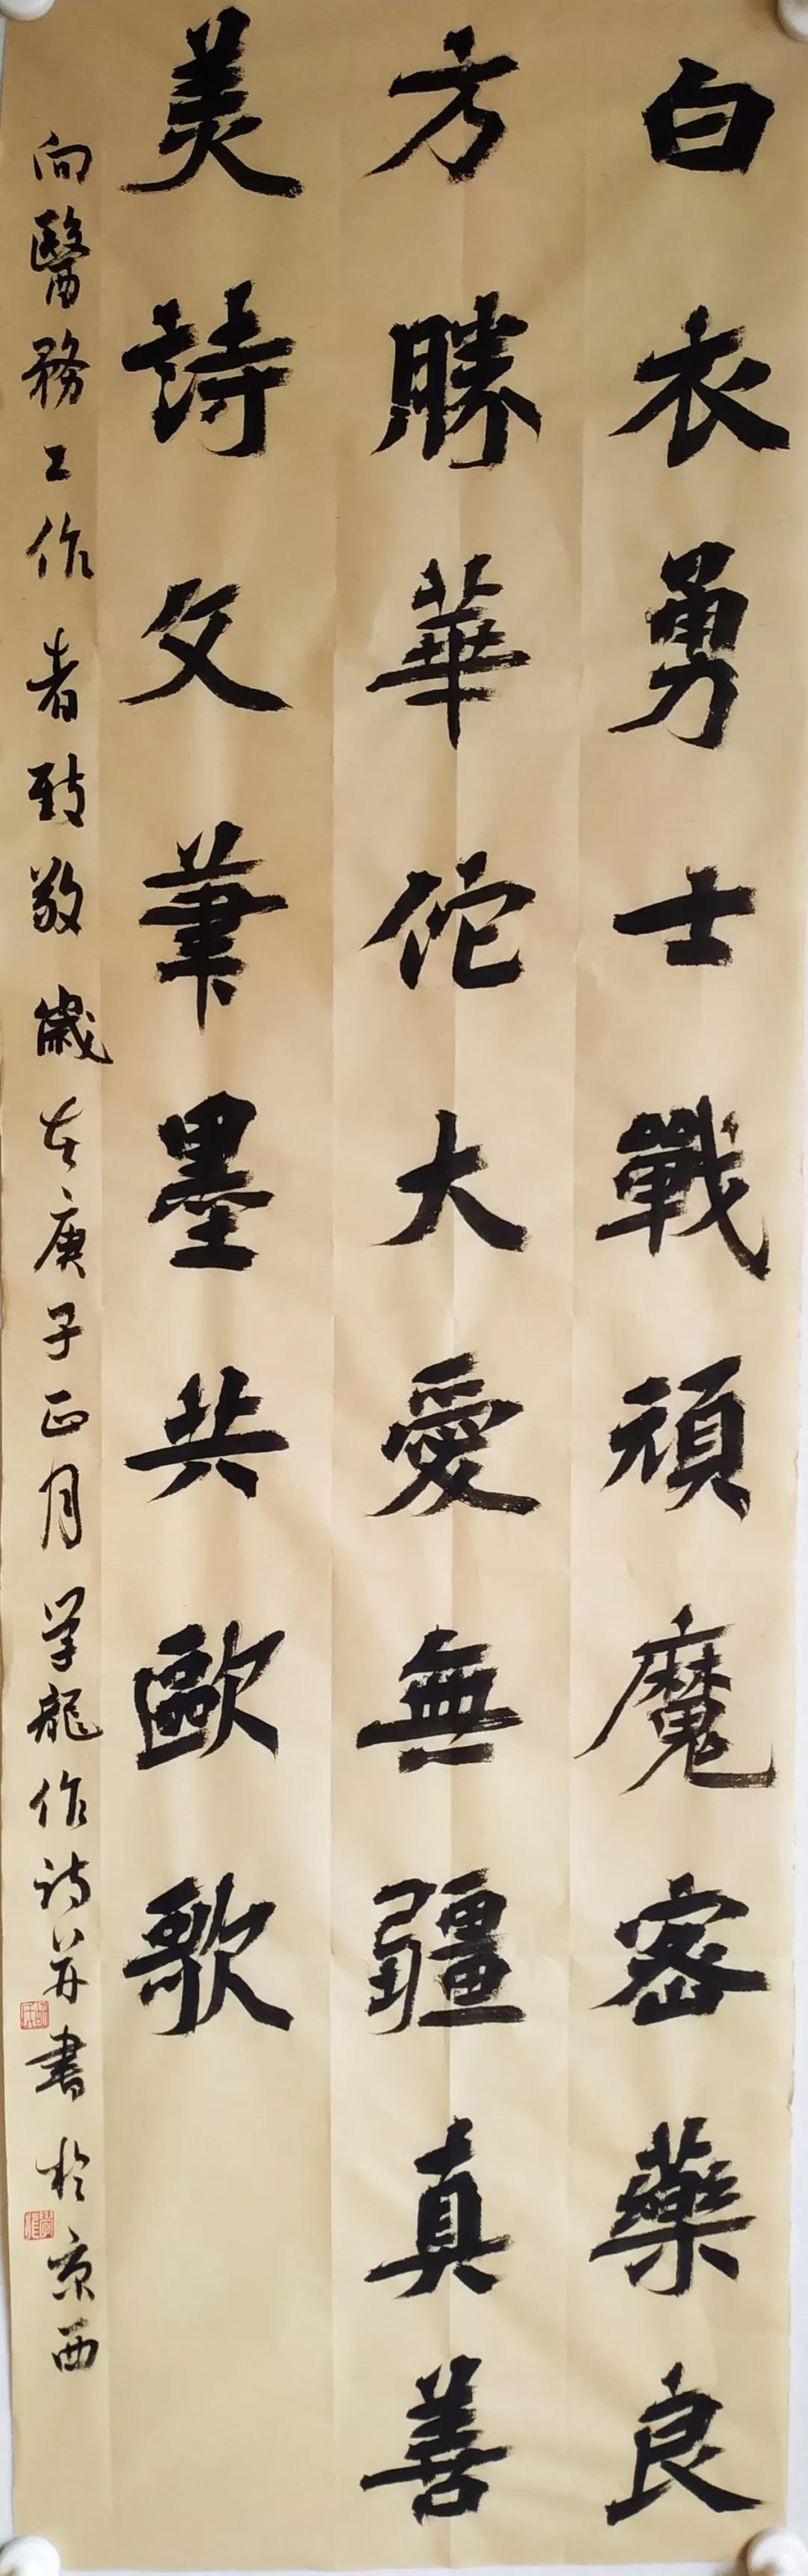 白衣勇士戰頑魔密藥良
方勝華佗大愛無疆真善
美詩文筆墨共歐歌
向醫務工作者致敬歲在庚子正月学龍作诗并書於京西